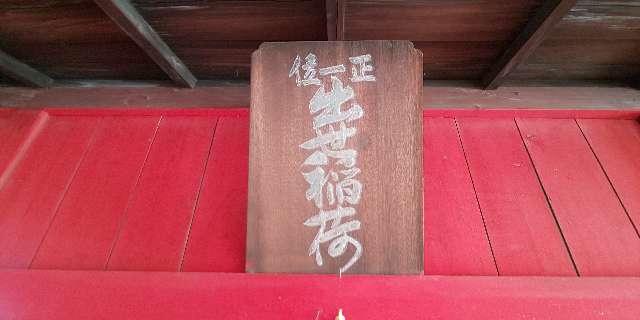 正一位
出世稲荷